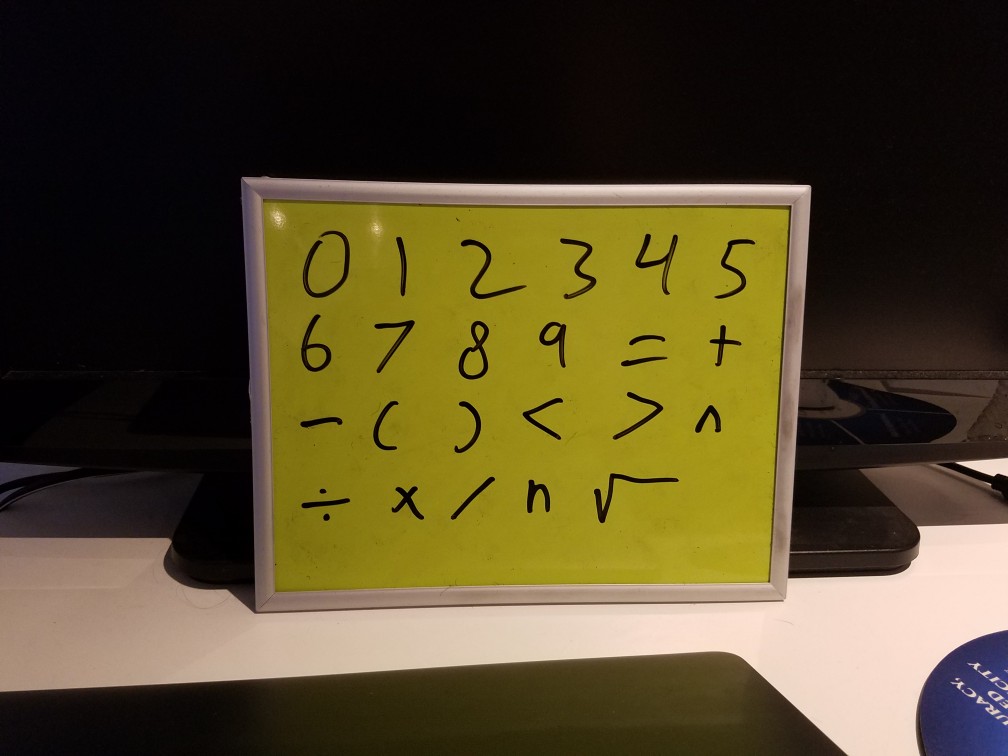 0 1 2 3 4 5
6 7 8 9 = +
- ( ) < > ^
÷ x / n √
URACY,
ED
CITY